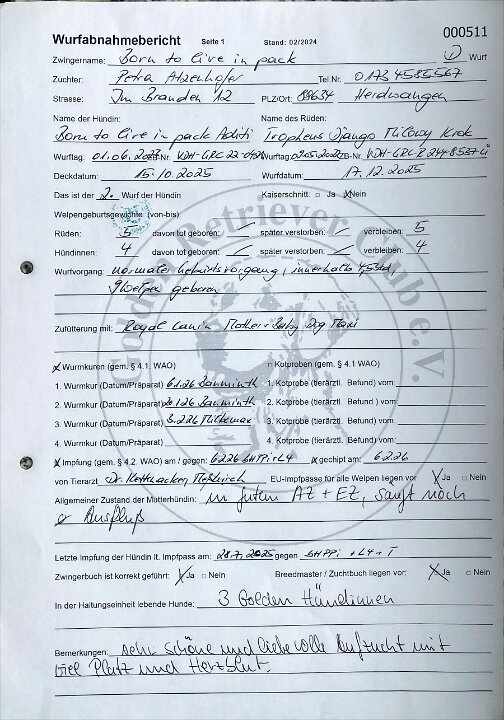 000511
Wurfabnahmebericht Seite 1 Stand: 02/2024
Zwingername: Born to live in pack Wurf
Züchter: Petra Atzenhofer Tel.Nr. 0173 4585567
Strasse: Im Branden 12 PLZ/Ort: 88634 Herdwangen
Name der Hündin: Name des Rüden:
Born to live in pack Tropheus Django Miłowy Krok
Wurftag: 01.06. Nr. VDH-GRC 22 Wurftag: ZB-Nr. VDH-GRC-R
Deckdatum: 15.10.2025 Wurfdatum: 17.12.2025
Das ist der 2. Wurf der Hündin Kaiserschnitt: □ Ja xNein
Welpengeburtsgewichte: (von-bis):
Rüden: 5 davon tot geboren: / später verstorben: / verbleiben: 5
Hündinnen: 4 davon tot geboren: / später verstorben: / verbleiben: 4
Wurfvorgang: normaler Geburtsvorgang, innerhalb
9 Welpen geboren
Zufütterung mit: Royal Canin Mother + Baby Dog Maxi
x Wurmkuren (gem. § 4.1. WAO) □ Kotproben (gem. § 4.1 WAO)
1. Wurmkur (Datum/Präparat) 6.1.26 Banminth 1. Kotprobe (tierärztl. Befund) vom:
2. Wurmkur (Datum/Präparat) 20.1.26 Banminth 2. Kotprobe (tierärztl. Befund) vom:
3. Wurmkur (Datum/Präparat) 3.2.26 Milbemax 3. Kotprobe (tierärztl. Befund) vom:
4. Wurmkur (Datum/Präparat) 4. Kotprobe (tierärztl. Befund) vom:
x Impfung (gem. §4.2. WAO) am / gegen: 6.2.26 SHPPi+L4 x gechipt am: 6.2.26
von Tierarzt Dr. Meßkirch EU-Impfpässe für alle Welpen liegen vor x Ja □ Nein
Allgemeiner Zustand der Mutterhündin: in gutem AZ + EZ, säugt noch
Ausfluß
Letzte Impfung der Hündin lt. Impfpass am: 28.7.2025 gegen SHPPi + L4 + T
Zwingerbuch ist korrekt geführt: x Ja □ Nein Breedmaster / Zuchtbuch liegen vor: x Ja □ Nein
In der Haltungseinheit lebende Hunde: 3 Golden Hündinnen
Bemerkungen: sehr schöne und liebevolle Aufzucht mit
viel Platz und Herzblut.
Golden Retriever Club e.V.